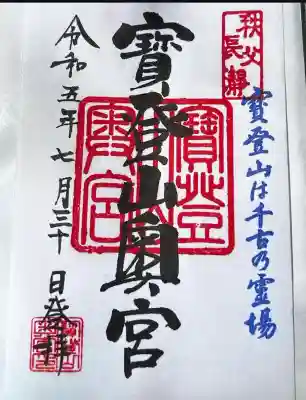 秩父
長瀞
寶登山は千古乃霊場
寶登山奥宮
寶登山
奥宮
令和五年七月三十日登拝